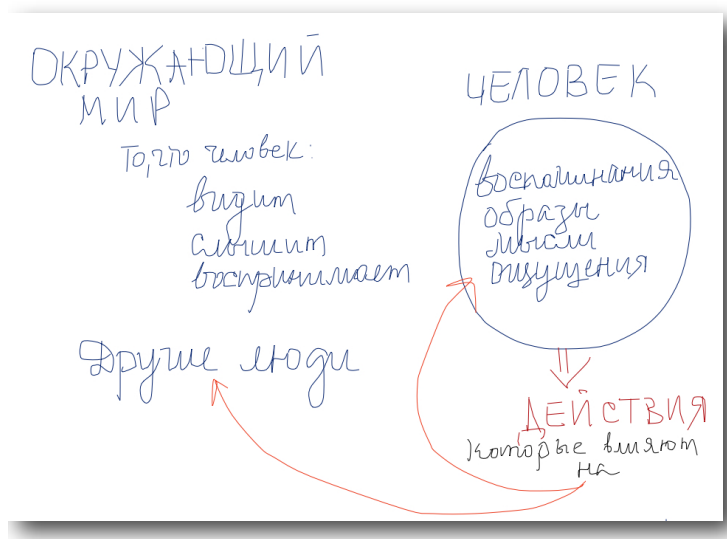 ОКРУЖАЮЩИЙ
МИР
То, что человек:
видит
слышит
воспринимает
Другие люди
ЧЕЛОВЕК
воспоминания
образы
мысли
ощущения
ДЕЙСТВИЯ
которые влияют
на